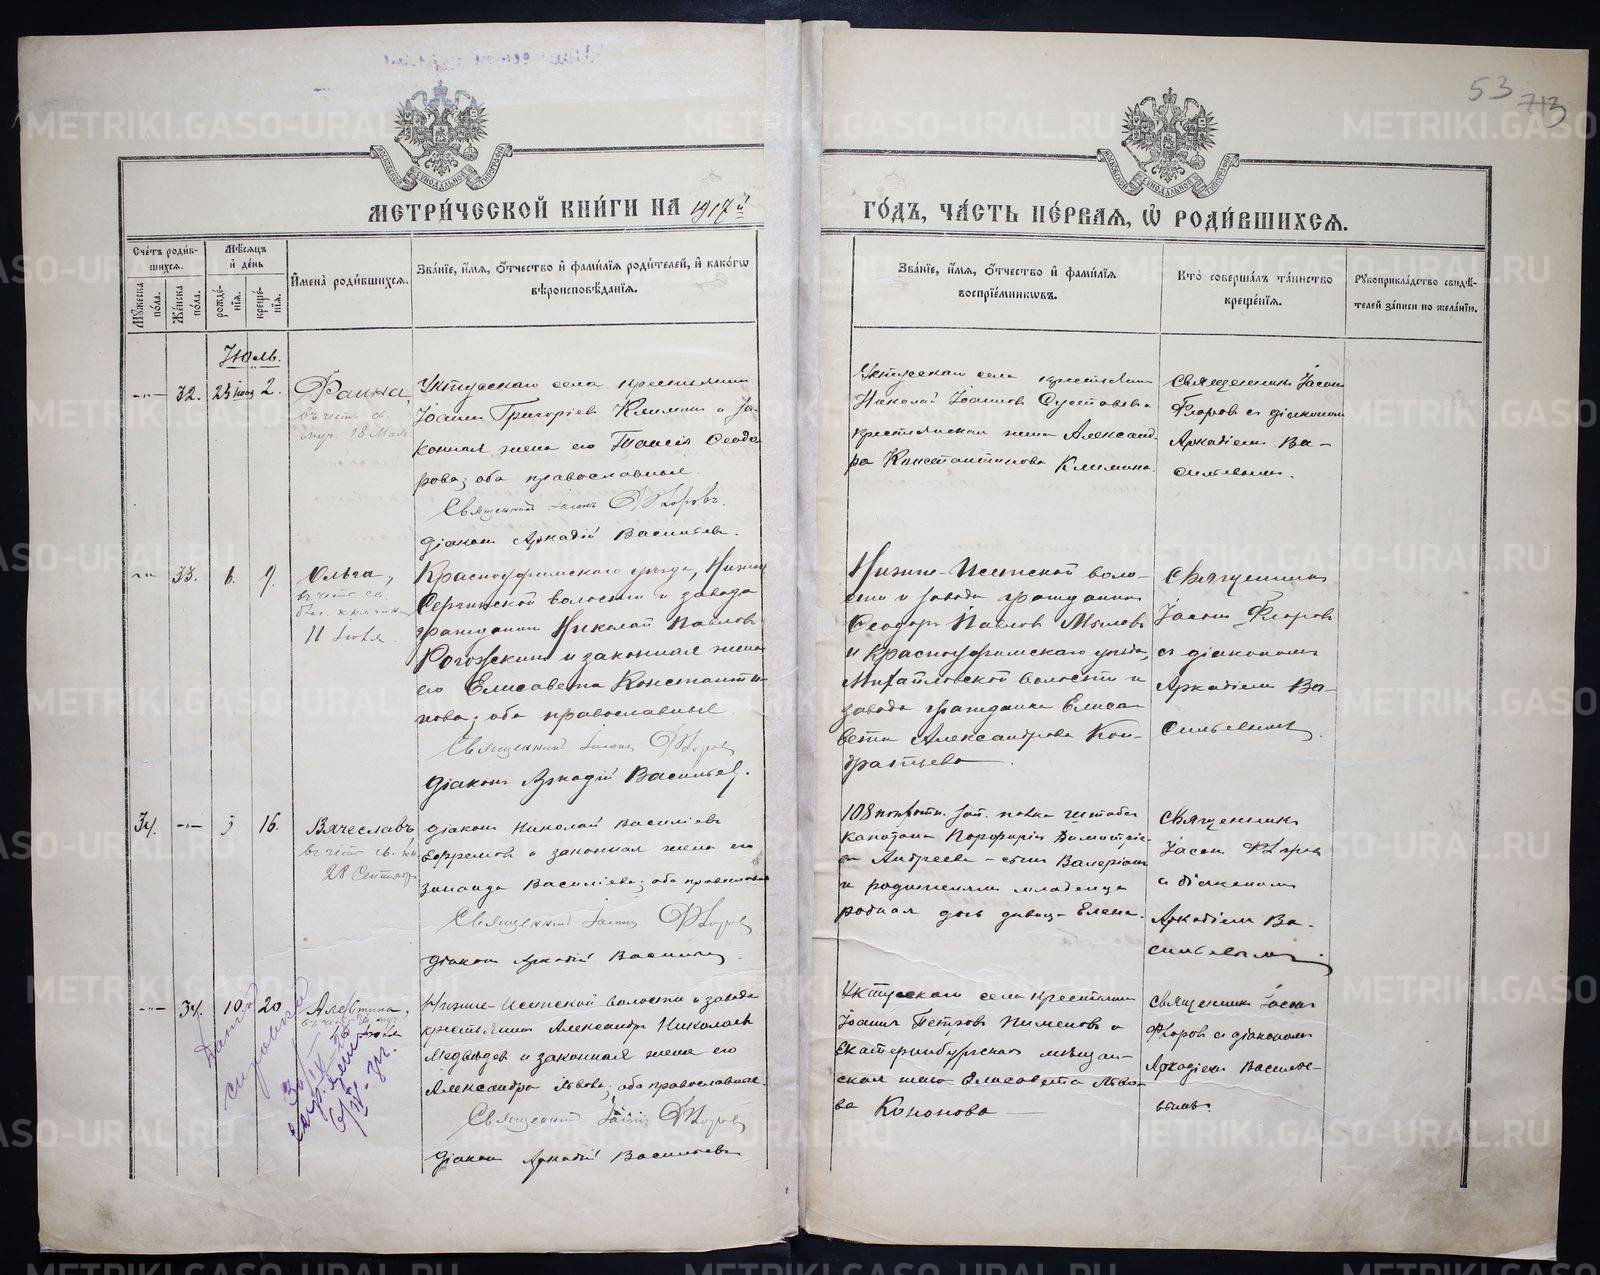 53 713
МОСКОВСКОЙ СѴНОДАЛЬНОЙ ТИПОГРАФІИ
МОСКОВСКОЙ СѴНОДАЛЬНОЙ ТИПОГРАФІИ
МЕТРИ́ЧЕСКОЙ КНИ́ГИ НА 1917й
ГО́ДЪ, ЧА́СТЬ ПЕ́РВАѦ, Ѡ҆ РОДИ́ВШИХСѦ.
Сче́тъ роди́в-
шихсѧ.
Мꙋ́жеска по́ла.
Же́нска по́ла.
Мѣ́сѧцъ
и҆ де́нь
рожде́-
нїѧ.
креще́-
нїѧ.
И҆мена̀ роди́вшихсѧ.
Зва́нїе, и҆́мѧ, ѻ҆́тчество и҆ фами́лїѧ роди́телей, и҆ како́гѡ
вѣроисповѣ́данїѧ.
Зва́нїе, и҆́мѧ, ѻ҆́тчество и҆ фами́лїѧ
воспрїе́мникѡвъ.
Кто̀ соверша́лъ та́инство
креще́нїѧ.
Рꙋкоприкла́дство свидѣ́-
телей за́писи по жела́нїю.
Іюль.
32. 2.
Фаина,
въ честь св.
мук. 18 Мая
Уктусскаго села крестьянин
Іоанн Григоріев Климин и за-
конная жена его Таисія Ѳеодо
рова; оба православные.
Священник Іасон Флоровъ.
діакон Аркадій Васильев.
Уктусскаго села крестьянин
Николай Іоаннов
крестьянская жена Александ-
ра Константинова Климина.
Священник Іасон
Флоров с діаконом
Аркадіем Ва-
сильевым.
33. 6. 9.
Ольга,
въ честь св.
11 Іюля.
Красноуфимскаго уезда, Нижне
Сергинской волости и завода
гражданин Николай Павлов
Рогожкин и законная жена
его Елисавета Константи-
нова; оба православные.
Священник Іасон Флоров
діакон Аркадій Васильев.
Нижне-Исетской воло-
сти и завода гражданин
Ѳеодор Павлов
и Красноуфимскаго уезда,
Михайловской волости и
завода гражданка Елиса-
вета Александрова Кон-
дратьева.
Священник
Іасон Флоров
с діаконом
Аркадіем Ва-
сильевым.
34. 5 16.
Вячеславъ
въ честь св. кн.
28 Сентябр
діакон Николай Василіев
Ефремов и законная жена его
Зинаида Василіева; оба православн
Священник Іасон Флоров
діакон Аркадій Васильев.
108 зап. полка штабс
капитана Порфирія Димитріе-
ва Андреева - сын Валеріан
и родителей младенца
родная дочь девица Елена.
Священник
Іасон Флоров
с діаконом
Аркадіем Ва-
сильевым.
34. 10. 20.
Алевтина,
въ честь св. муч.
16 Іюля
Нижне-Исетской волости и завода
крестьянин Александр Николаев
Медведев и законная жена его
Александра Львова; оба православные.
Священник Іасон Флоров
діакон Аркадій Васильев
Уктусскаго села крестьянин
Іоанн Петров Пименов и
Екатеринбургская мещан-
ская жена Елисавета Льво-
ва Кононова
Священник Іасон
Флоров с діаконом
Аркадіем Василье-
вым.
METRIKI.GASO-URAL.RU